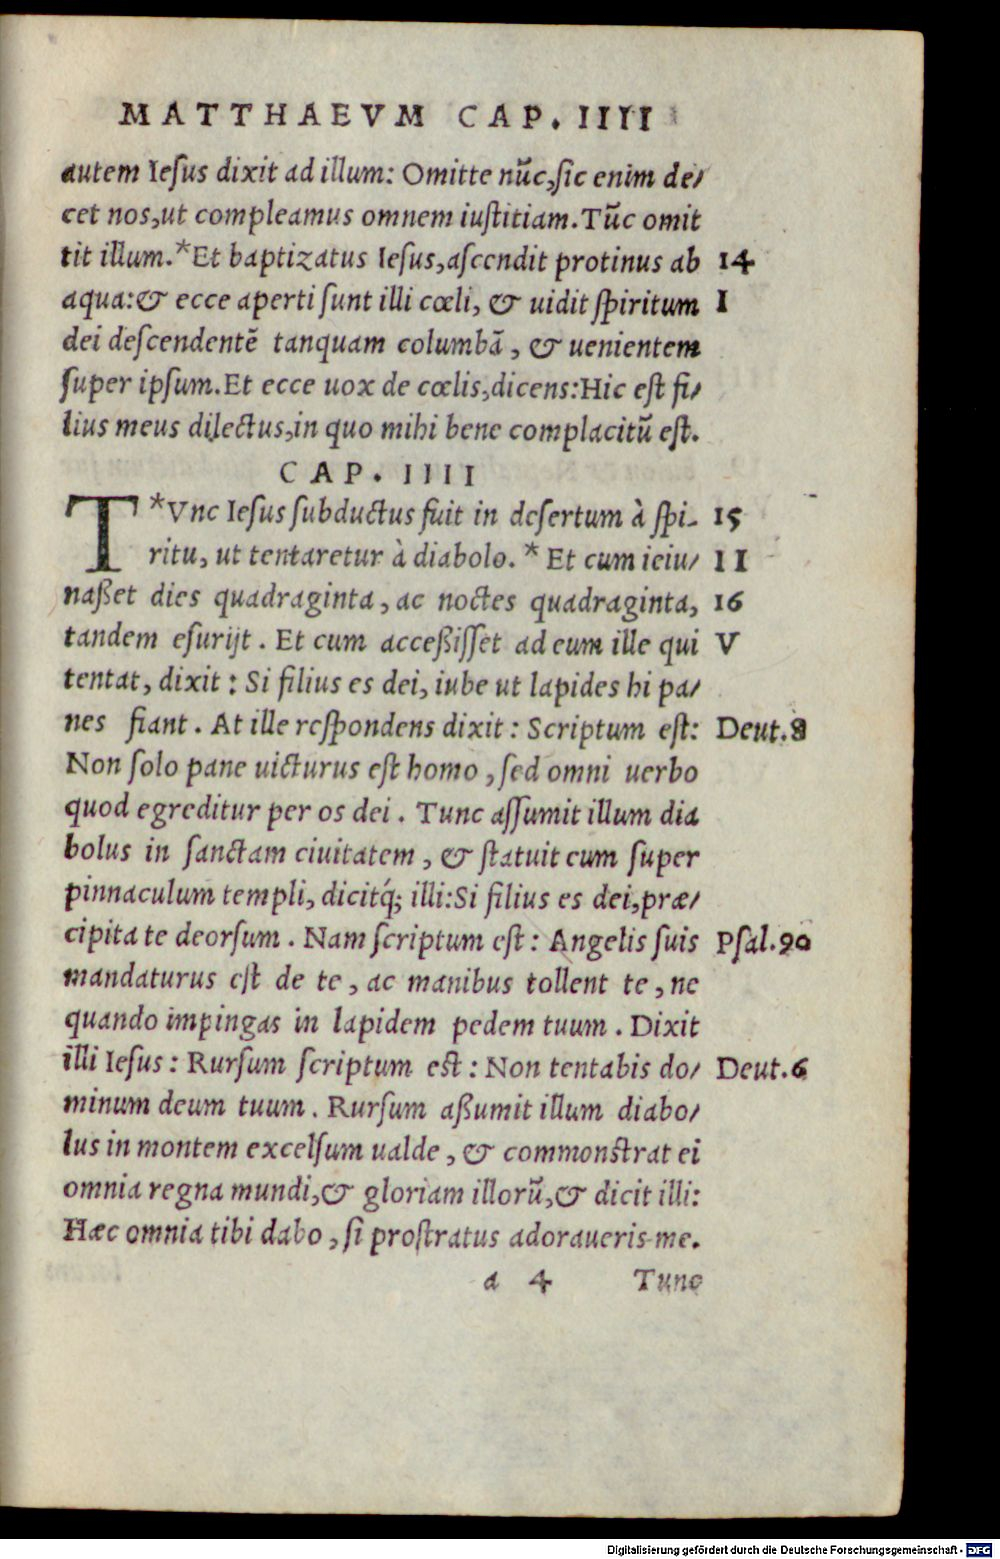 MATTHAEVM CAP. IIII
autem Iesus dixit ad illum: Omitte nūc, sic enim de/
cet nos, ut compleamus omnem iustitiam. Tūc omit
tit illum. *Et baptizatus Iesus, ascendit protinus ab 14
aqua: & ecce aperti sunt illi cœli, & uidit spiritum I
dei descendentē tanquam columbā, & uenientem
super ipsum. Et ecce uox de cœlis, dicens: Hic est fi/
lius meus dilectus, in quo mihi bene complacitū est.
CAP. IIII
T*Vnc Iesus subductus fuit in desertum à spi- 15
ritu, ut tentaretur à diabolo. * Et cum ieiu/ II
naßet dies quadraginta, ac noctes quadraginta, 16
tandem esurijt. Et cum acceßisset ad eum ille qui V
tentat, dixit: Si filius es dei, iube ut lapides hi pa/
nes fiant. At ille respondens dixit: Scriptum est: Deut.8
Non solo pane uicturus est homo, sed omni uerbo
quod egreditur per os dei. Tunc assumit illum dia
bolus in sanctam ciuitatem, & statuit eum super
pinnaculum templi, dicitq́; illi: Si filius es dei, præ/
cipita te deorsum. Nam scriptum est: Angelis suis Psal.90
mandaturus est de te, ac manibus tollent te, ne
quando impingas in lapidem pedem tuum. Dixit
illi Iesus: Rursum scriptum est: Non tentabis do/ Deut.6
minum deum tuum. Rursum aßumit illum diabo/
lus in montem excelsum ualde, & commonstrat ei
omnia regna mundi, & gloriam illorū, & dicit illi:
Hæc omnia tibi dabo, si prostratus adoraueris me.
a 4 Tunc
Digitalisierung gefördert durch die Deutsche Forschungsgemeinschaft - DFG